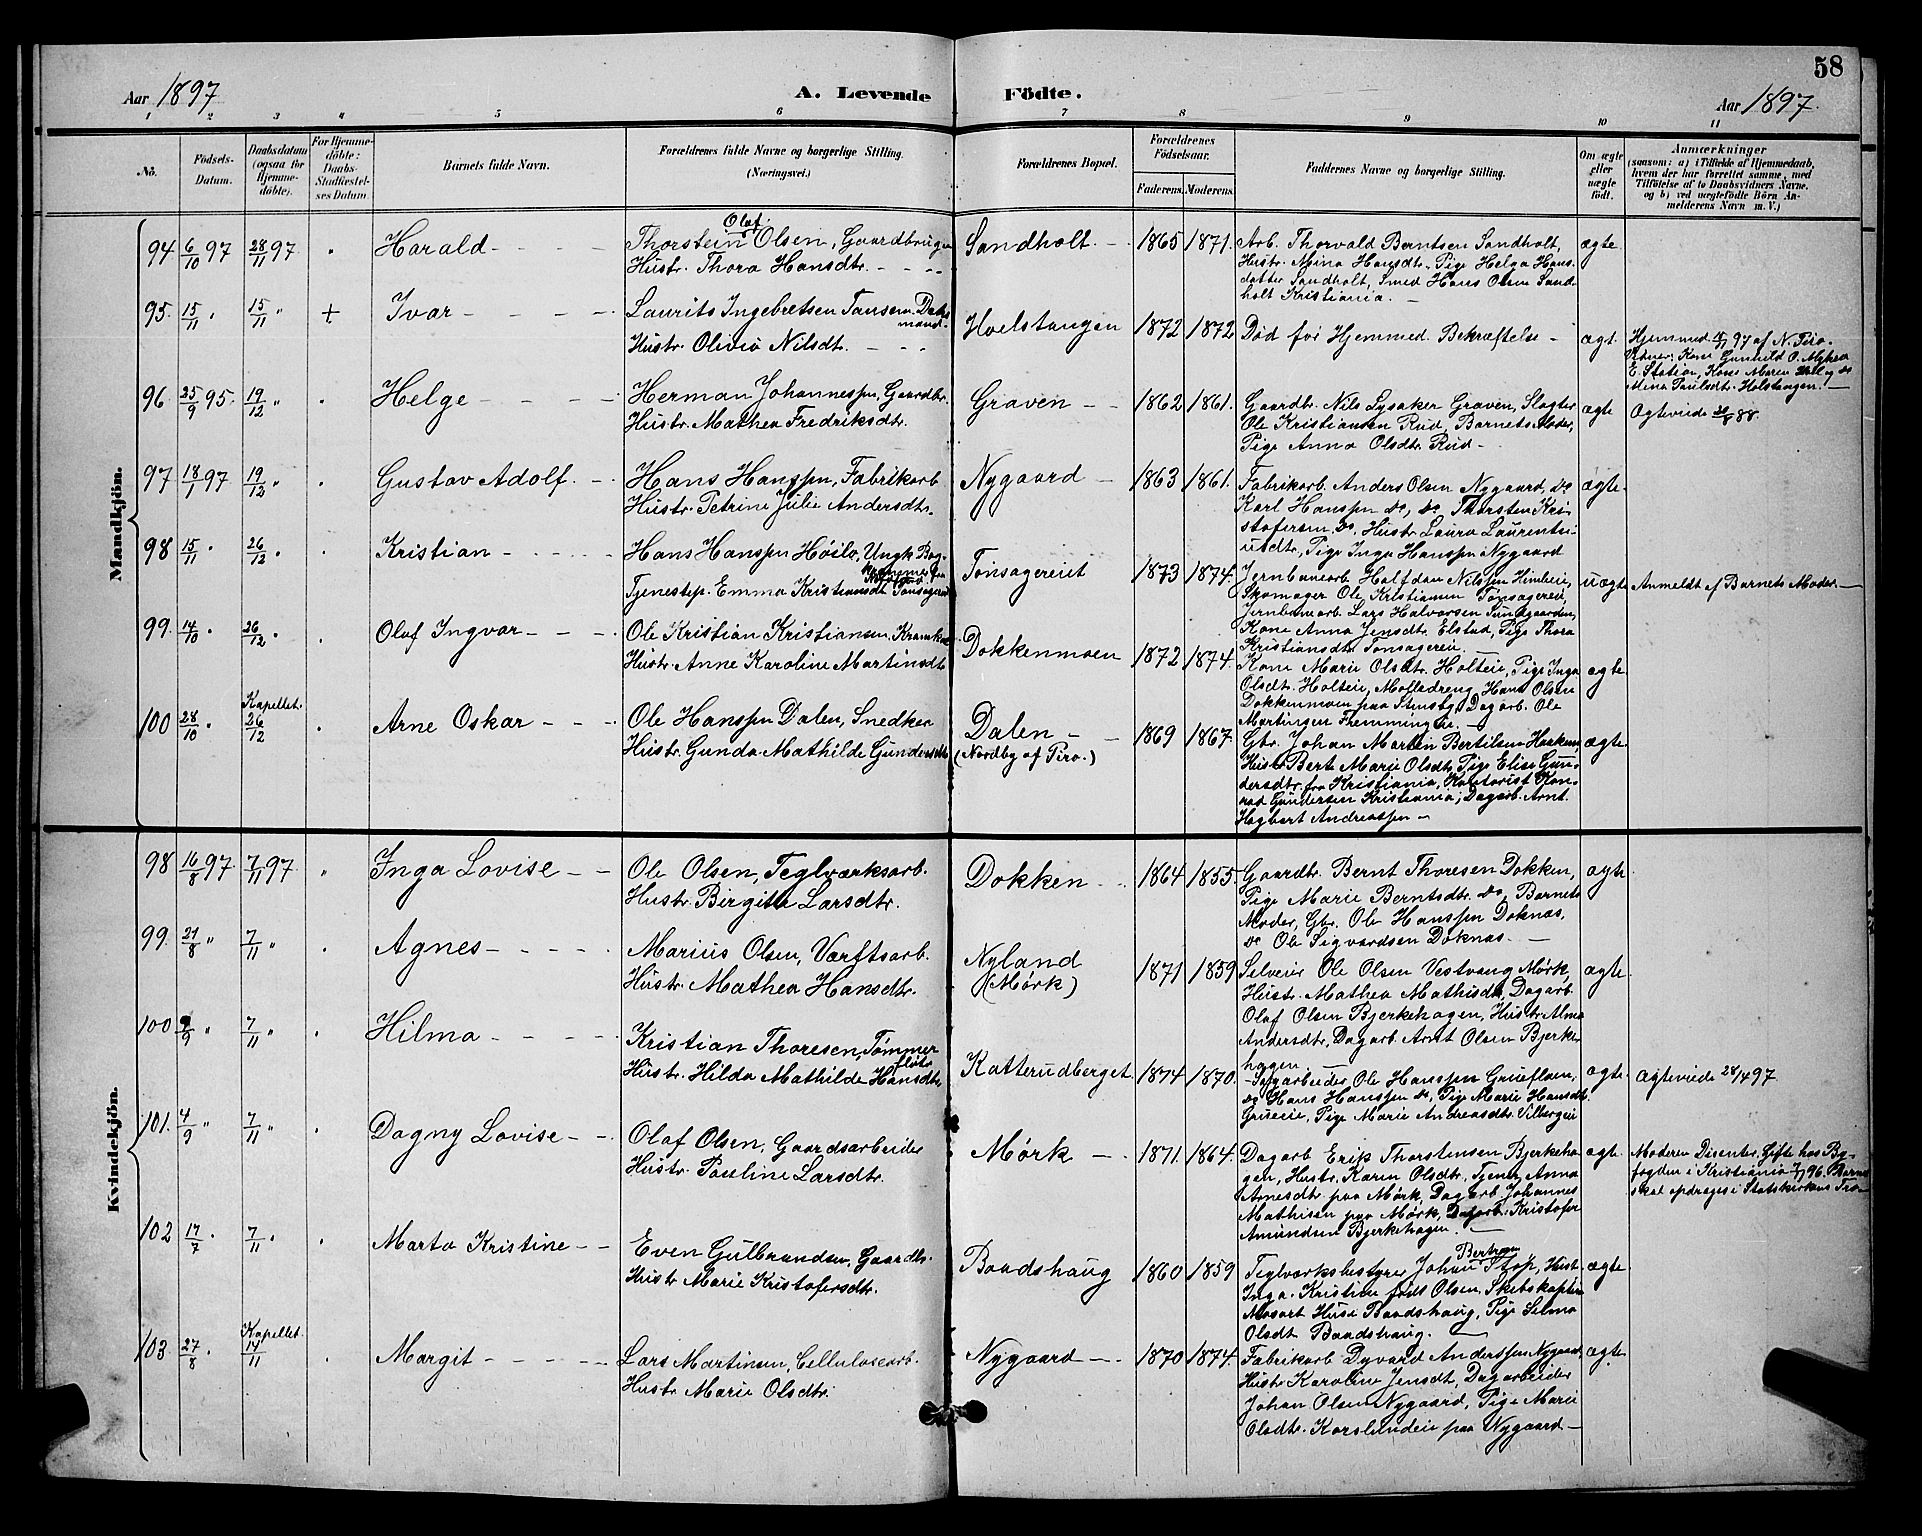 58
Aar 1897
A. Levende Födte.
Aar 1897.
1 2 3 4 5 6 7 8 9 10 11
No.
Födsels-Datum.
Daabsdatum (ogsaa for Hjemme-döbte).
For Hjemme-döbte: Daabs-Stadfæstel-ses Datum
Barnets fulde Navn.
Forældrenes fulde Navne og borgerlige Stilling. (Næringsvei.)
Forældrenes Bopæl.
Forældrenes Födselsaar.
Faderens. Moderens.
Faddernes Navne og borgerlige Stilling.
Om ægte eller uægte födt.
Anmærkninger
(saasom: a) i Tilfælde af Hjemmedaab, hvem der har forrettet samme, med Tilföielse af to Daabsvidners Navne, og b) ved uægtefödte Börn Anmelderens Navn m. V.)
Mandkjön.
94 6/10 97 28/11 97 " Harald
Olaf
Thorstein Olsen, Gaardbruger
Hustr. Thora Hansdtr.
Sandholt. 1865 1871.
Arb. Thorvald Berntsen Sandholt,
Hustr. Mina Hansdtr. Pige Helga Hans-
datter Sandholt, Smed Hans Olsen Sand-
holt Kristiania.
ægte
95. 15/11 " 15/11 " + Ivar
Laurits Ingebretsen
Hustr. Olivia Nilsdt.
Holstangen 1872 1872
Død før Hjemmed. Bekræftelse
ægt.
Hjemmed 15/11 97 af N. Tiro.
E. Station, Kone Maren
Mina Paulsdt. Holstangen.
96 25/9 95. 19/12 " Helge
Herman Johannessen, Gaardbr.
Hustr. Mathea Fredriksdt.
Graven 1862 1861.
Gaardbr. Nils Lysaker Graven, Slagter
Ole Kristiansen Rud, Barnets Moder,
Pige Anna Olsdtr. Rud
ægte
Ægteviede 88.
97 18/1 97 19/12 " Gustav Adolf.
Hans Hanssen, Fabrikarb
Hustr. Petrine Julie Andersdtr.
Nygaard 1863 1861.
Fabrikarb. Anders Olsen Nygaard, do
Karl Hanssen do, do Thorsten Kri-
stofersen do, Hustr Laura Laurentsi-
usdtr, Pige Inga Hanssen Nygaard
ægte.
98 15/11 " 26/12 " Kristian
Hans Hanssen Høilo, Ungk.
Tjenestep. Emma Kristiansdt Tonsagereiet
Tonsagereiet 1873 1874.
Jernbanearb Halfdan Nilssen
Skomager Ole Kristiansen Tonsagerei,
Jernbanearb Lars Halvorsen
Kone Anna Jensdtr. Elstad, Pige Thora
Kristiansdt. Tonsagerei.
uægte
Anmeldt af Barnets Moder.
99. 14/10 " 26/12 " Olaf Ingvar
Ole Kristian Kristiansen,
Hustr. Anne Karoline Martinsdtr
Dokkenmoen 1872 1874.
Kone Marie Olsdtr. Holteie, Pige Inga
Olsdt. Holteie, Hans Olsen
Dokkenmoen paa Stensby, Dagarb. Ole
Martinsen
ægte
100 28/10 " Kapellet. 26/12 Arne Oskar
Ole Hanssen Dalen, Snedker
Hustr. Gunda Mathilde Gundersdtr
Dalen
(Nordby af Tiro.)
1869 1867.
Gbr. Johan Martin Bertilsen
Hustr Berte Marie Olsdt, Pige Elise Gun-
dersdtr. fra Kristiania, Kontorist Kon-
rad Gundersen Kristiania, Dagarb. Arnt
Hagbart Andreassen
ægte.
Kvindekjön.
98 16/8 97 7/11 97 " Inga Lovise
Ole Olsen, Teglværksarb.
Hustr. Birgitte Larsdtr.
Dokken 1864 1855.
Gaardbr. Bernt Thoresen Dokken,
Pige Marie Berntsdtr. do, Barnets
Moder, Gbr. Ole Hanssen Doknas,
do Ole Sigvardsen Doknas.
ægte
99. 21/8 " 7/11 " Agnes
Marius Olsen, Værftsarb.
Hustr. Mathea Hansdtr.
Nyland
(Mørk)
1871 1859
Selveier Ole Olsen Vestvang Mørk,
Hustr. Mathea Mathisdt, Dagarb.
Olaf Olsen Bjerkehagen, Hustr. Alma
Andersdtr, Dagarb. Arnt Olsen Bjerke
hagen
ægte.
100 9/9 " 7/11 " Hilma
Kristian Thoresen, Tømmer
fløter
Hustr. Hilda Mathilde Hansdtr
Katterudberget 1874 1870.
Dagarbeider Ole Hanssen Grueflaen,
do Hans Hanssen do, Pige Marie Hansdt.
Grueeie, Pige Marie Andreasdtr Vilbergeie
ægte.
Ægteviede 28/4 97
101. 4/9 " 7/11 " Dagny Lovise
Olaf Olsen, Gaardsarbeider
Hustr. Pauline Larsdtr.
Mørk 1871. 1864.
Dagarb Erik Thorstensen Bjerkeha-
gen, Hustr. Karen Olsdtr, Tjener Anna
Arnesdt paa Mørk, Dagarb Johannes
Mathisen paa Mørk, Dagarb. Kristofer
Amundsen Bjerkehagen.
ægte.
Moderen Disenter. Gifte hos By-
fogden i Kristiania 96. Barnet
skal opdrages i Statskirkens Tro
102 17/7 " 7/11 " Marta Kristine
Even Gulbrandsen, Gaardbr.
Hustr Marie Kristofersdtr.
Baadshaug 1860 1859
Teglværksbestyrer Johan Bertram Stop, Hust
Inga Kristine født Olsen, Skibskaptein
Mosart Huse Baadshaug, Pige Selma
Olsdt Baadshaug.
ægte
103 27/8 " Kapellet. 14/11 Margit
Lars Martinsen, Cellulosearb.
Hustr Marie Olsdtr.
Nygaard 1870 1874.
Fabrikarb Dyvard Anderssen Nygaard,
Hustr Karoline Jensdt, Dagarbeider
Johan Olsen Nygaard, Pige Marie
Olsdtr. Korslundeie paa Nygaard
ægte